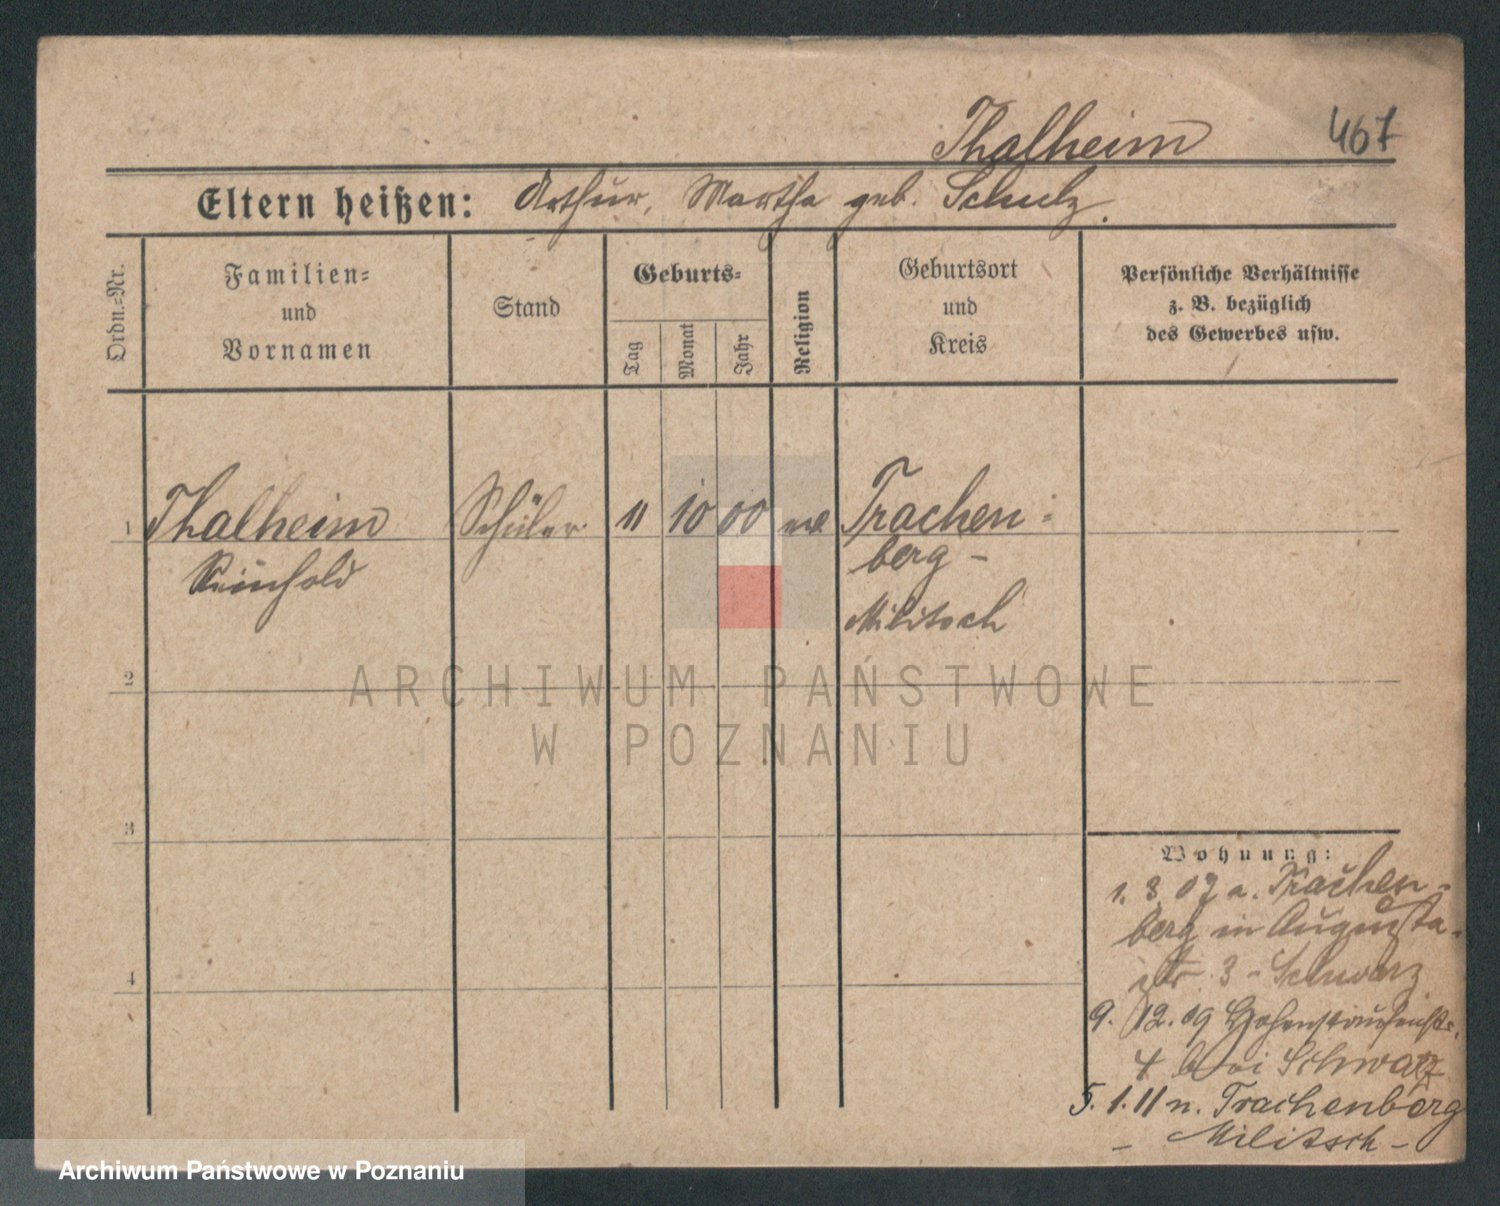 Thalheim 467
Eltern heißen: Arthur, Martha geb. Schulz.
Ordn.=Nr.
Familien=
und
Vornamen
Stand
Geburts=
Tag
Monat
Jahr
Religion
Geburtsort
und
Kreis
Persönliche Verhältnisse
z. B. bezüglich
des Gewerbes usw.
1 Thalheim Schüler 11 10 00 Trachen=
Reinhold berg –
Militsch
2
3
4
Wohnung:
1. 3. 07 a. Trachen-
berg in Augusta-
str. 3 – Schwarz
9. 12. 09 Hohenstaufenstr.
4 bei Schwarz
5. 1. 11 n. Trachenberg
– Militsch –
ARCHIWUM PAŃSTWOWE
W POZNANIU
Archiwum Państwowe w Poznaniu